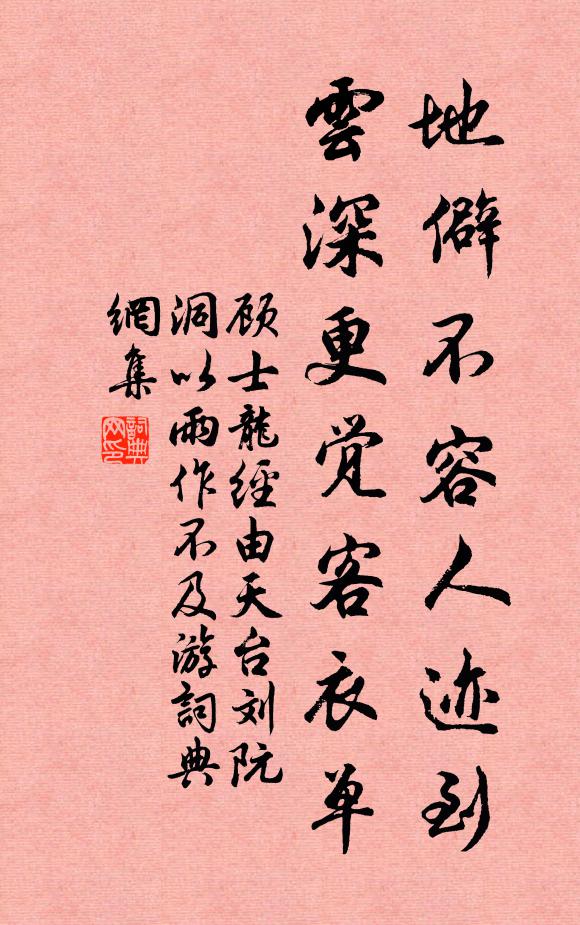 地僻不容人迹到
雲深更觉客衣单
顾士龍經由天台刘阮
洞以雨作不及游詞典
網集
詞典
网印